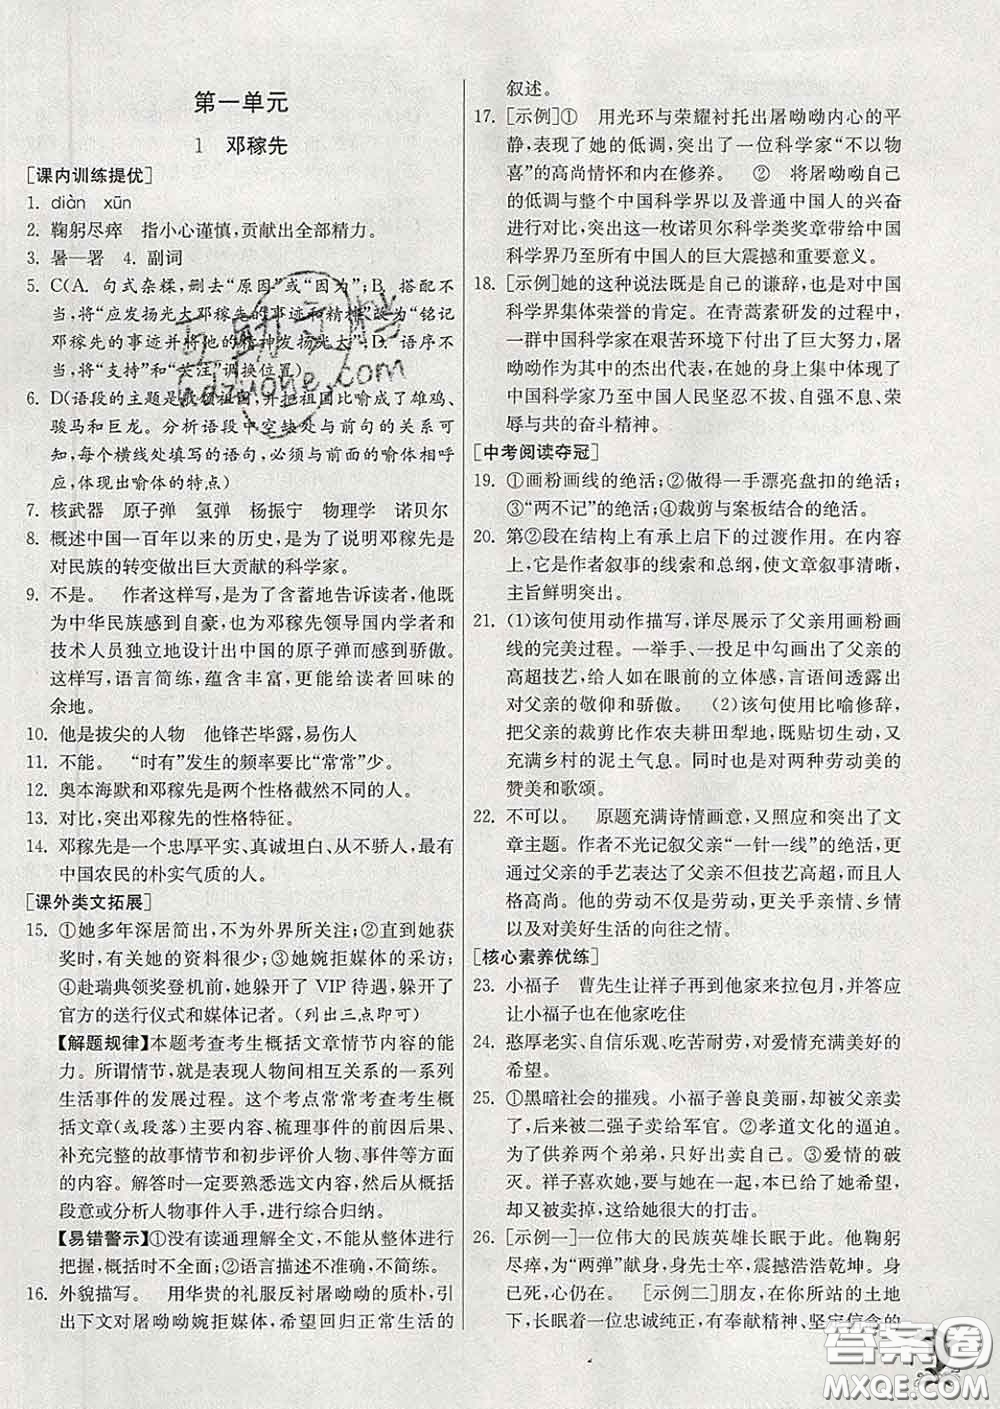 第一单元
1　邓稼先
[课内训练提优]
1. diàn　xūn
2. 鞠躬尽瘁　指小心谨慎,贡献出全部精力。
3. 暑—署　4. 副词
5. C(A. 句式杂糅,删去“原因”或“因为”;B. 搭配不
当,将“应发扬光大邓稼先的事迹和精神”改为“铭记
邓稼先的事迹并将他的精神发扬光大”;D. 语序不
当,将“支持”和“关注”调换位置)
6. D(语段的主题是歌颂祖国,并把祖国比喻成了雄鸡、
骏马和巨龙。分析语段中空缺处与前句的关系可
知,每个横线处填写的语句,必须与前面的喻体相呼
应,体现出喻体的特点)
7. 核武器　原子弹　氢弹　杨振宁　物理学　诺贝尔
8. 概述中国一百年以来的历史,是为了说明邓稼先是
对民族的转变做出巨大贡献的科学家。
9. 不是。　作者这样写,是为了含蓄地告诉读者,他既
为中华民族感到自豪,为邓稼先领导国内学者和
技术人员独立地设计出中国的原子弹而感到骄傲。
这样写,语言简练,蕴含丰富,更能给读者回味的
余地。
10. 他是拔尖的人物　他锋芒毕露,易伤人
11. 不能。　“时有”发生的频率要比“常常”少。
12. 奥本海默和邓稼先是两个性格截然不同的人。
13. 对比,突出邓稼先的性格特征。
14. 邓稼先是一个忠厚平实、真诚坦白、从不骄人,最有
中国农民的朴实气质的人。
[课外类文拓展]
15. ①她多年深居简出,不为外界所关注;②直到她获
奖时,有关她的资料很少;③她婉拒媒体的采访;
④赴瑞典领奖登机前,她躲开了 VIP 待遇,躲开了
官方的送行仪式和媒体记者。(列出三点即可)
【解题规律】本题考查考生概括文章情节内容的能
力。所谓情节,就是展现人物间相互关系的一系列
生活事件的发展过程。这个考点常常考查考生概
括文章(或段落)主要内容、梳理事件的前因后果、
补充完整的故事情节和初步评价人物、事件等方面
的内容。解答时一定要熟悉选文内容,从选择、概括
段意或分析人物事件入手,进行综合归纳。
【易错警示】①没有读通理解全文,不能从整体进行
把握,概括时不全面;②语言描述不准确,不简练。
16. 外貌描写。　用华贵的礼服反衬屠呦呦的质朴,引
出下文对屠呦呦婉拒媒体,希望回归正常生活的
叙述。
17. [示例]①　用光环与荣耀衬托出屠呦呦内心的平
静,表现了她的低调,突出了一位科学家“不以物
喜”的高尚情怀和内在修养。　②　将屠呦呦自己
的低调与整个中国科学界以及普通中国人的兴奋
进行对比,突出这一枚诺贝尔科学类奖章带给中国
科学界乃至所有中国人的巨大震撼和重要意义。
18. [示例]她的这种说法既是自己的谦辞,也是对中国
科学界集体荣誉的肯定。在青蒿素研发的过程中,
一群中国科学家在艰苦环境下付出了巨大努力,屠
呦呦作为其中的杰出代表,在她的身上集中体现了
中国科学家乃至中国人民坚忍不拔、自强不息、荣
辱与共的奋斗精神。
[中考阅读夺冠]
19. ①画粉画线的绝活;②做得一手漂亮盘扣的绝活;
③“两不记”的绝活;④裁剪与案板结合的绝活。
20. 第②段在结构上有承上启下的过渡作用。在内容
上,它是作者叙事的线索和总纲,使文章叙事清晰,
主旨鲜明突出。
21. (1)该句使用动作描写,详尽展示了父亲用画粉画
线的完美过程。一举手、一投足中勾画出了父亲的
高超技艺,给人如在眼前的立体感,言语间透露出
对父亲的敬仰和骄傲。　(2)该句使用比喻修辞,
把父亲的裁剪比作农夫耕田犁地,既贴切生动,又
充满乡村的泥土气息。同时也是对两种劳动美的
赞美和歌颂。
22. 不可以。　原题充满诗情画意,又照应和突出了文
章主题。作者不光记叙父亲“一针一线”的绝活,更
通过父亲的手艺表现了父亲不但技艺高超,而且人
格高尚。他的劳动不仅是劳动,更充满了亲情、乡情
以及对美好生活的向往之情。
[核心素养优练]
23. 小福子　曹先生让祥子再到他家来拉包月,并答应
让小福子也在他家吃住
24. 憨厚老实、自信乐观、吃苦耐劳,对爱情充满美好的
希望。
25. ①黑暗社会的摧残。小福子善良美丽,却被父亲卖
了,后来被二强子卖给军官。②孝道文化的逼迫。
为了供养两个弟弟,只好出卖自己。③爱情的破
灭。祥子喜欢她,要与她在一起,本已给了她希望,
却又被卖掉,这给她很大的打击。
26. [示例一]一位伟大的民族英雄长眠于此。他鞠躬
尽瘁,为“两弹”研制,身先士卒,震撼浩浩乾坤。身
已死,心仍在。　[示例二]朋友,在你所站的土地
下,长眠着一位忠诚纯正,有奉献精神、坚定信念的
答案圈
MXQE.COM